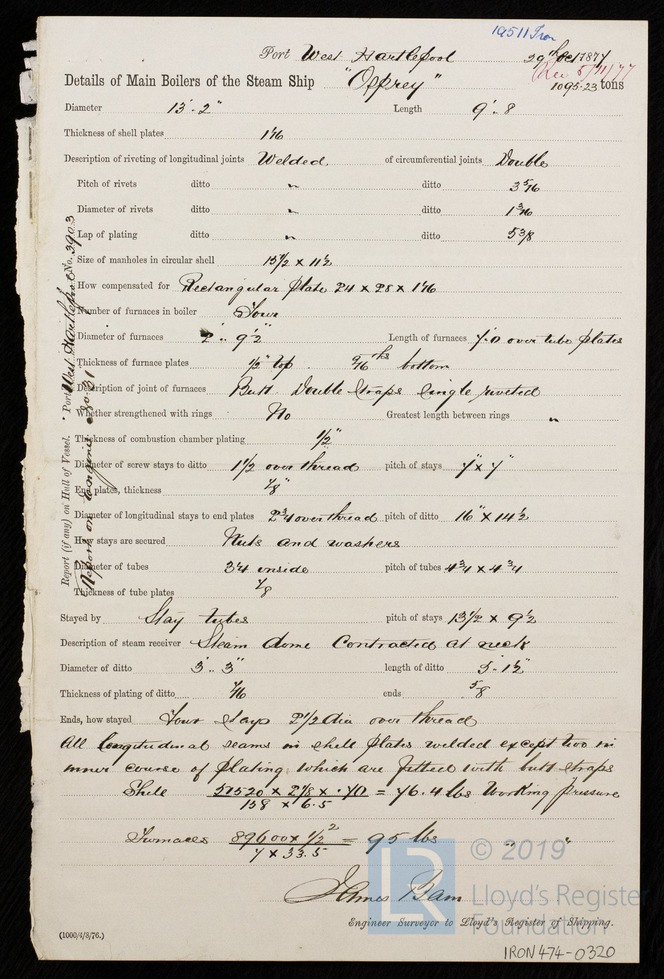 19511 Iron
Port West Hartlepool 29th Oct 1877
Rec 5/11/77
Details of Main Boilers of the Steam Ship "Osprey" 1095.23 tons
Diameter 13'-2" Length 9'-8
Thickness of shell plates 1 1/16
Description of riveting of longitudinal joints Welded of circumferential joints Double
Pitch of rivets ditto " ditto 3 5/16
Diameter of rivets ditto " ditto 1 3/16
Lap of plating ditto " ditto 5 3/8
Size of manholes in circular shell 15 1/2 x 11 1/2
How compensated for Rectangular plate 24 x 28 x 1 1/16
Number of furnaces in boiler Four
Diameter of furnaces 2'.. 9 1/2" Length of furnaces 7.0 over tube plates
Thickness of furnace plates 1/2" top 9/16ths bottom
Description of joint of furnaces Butt Double straps single riveted
Whether strengthened with rings No Greatest length between rings "
Thickness of combustion chamber plating 1/2"
Diameter of screw stays to ditto 1 1/2 over thread pitch of stays 7" x 7"
End plates, thickness 7/8"
Diameter of longitudinal stays to end plates 2 3/4 over thread pitch of ditto 16" x 14 1/2
How stays are secured Nuts and washers
Diameter of tubes 3 1/4 inside pitch of tubes 4 3/4 x 4 3/4
Thickness of tube plates 7/8
Stayed by Stay tubes pitch of stays 13 1/2 x 9 1/2
Description of steam receiver Steam dome Contracted at neck
Diameter of ditto 3'.. 3" length of ditto 5-1 1/2
Thickness of plating of ditto 7/16 ends 5/8
Ends, how stayed Four stays 2 1/2 dia over thread
All longitudinal seams in shell plates welded except two in
inner course of plating, which are fitted with butt straps
Shell 57520 x 2 1/8 x .70 / 158 x 6.5 = 76.4 lbs Working pressure
Furnaces 89600 x 1/2² / 7 x 33.5 = 95 lbs " "
James Bain
Engineer Surveyor to Lloyd's Register of Shipping.
(1000/4/8/76.)
Report (if any) on Hull of Vessel. Port West Hartlepool No. 3903
Report on Engines No. 31
LR © 2019
Lloyd's Register
Foundation
IRON474-0320